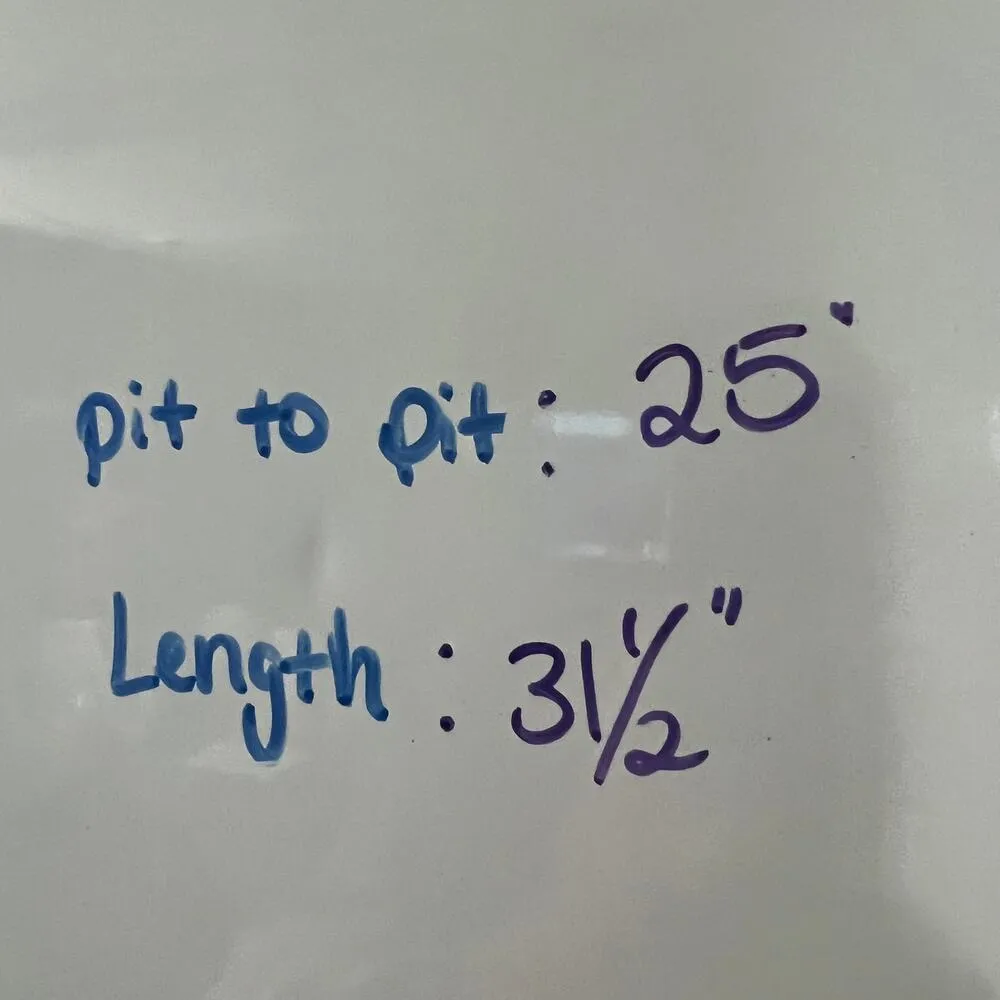 pit to pit : 25"
Length : 31 1/2"